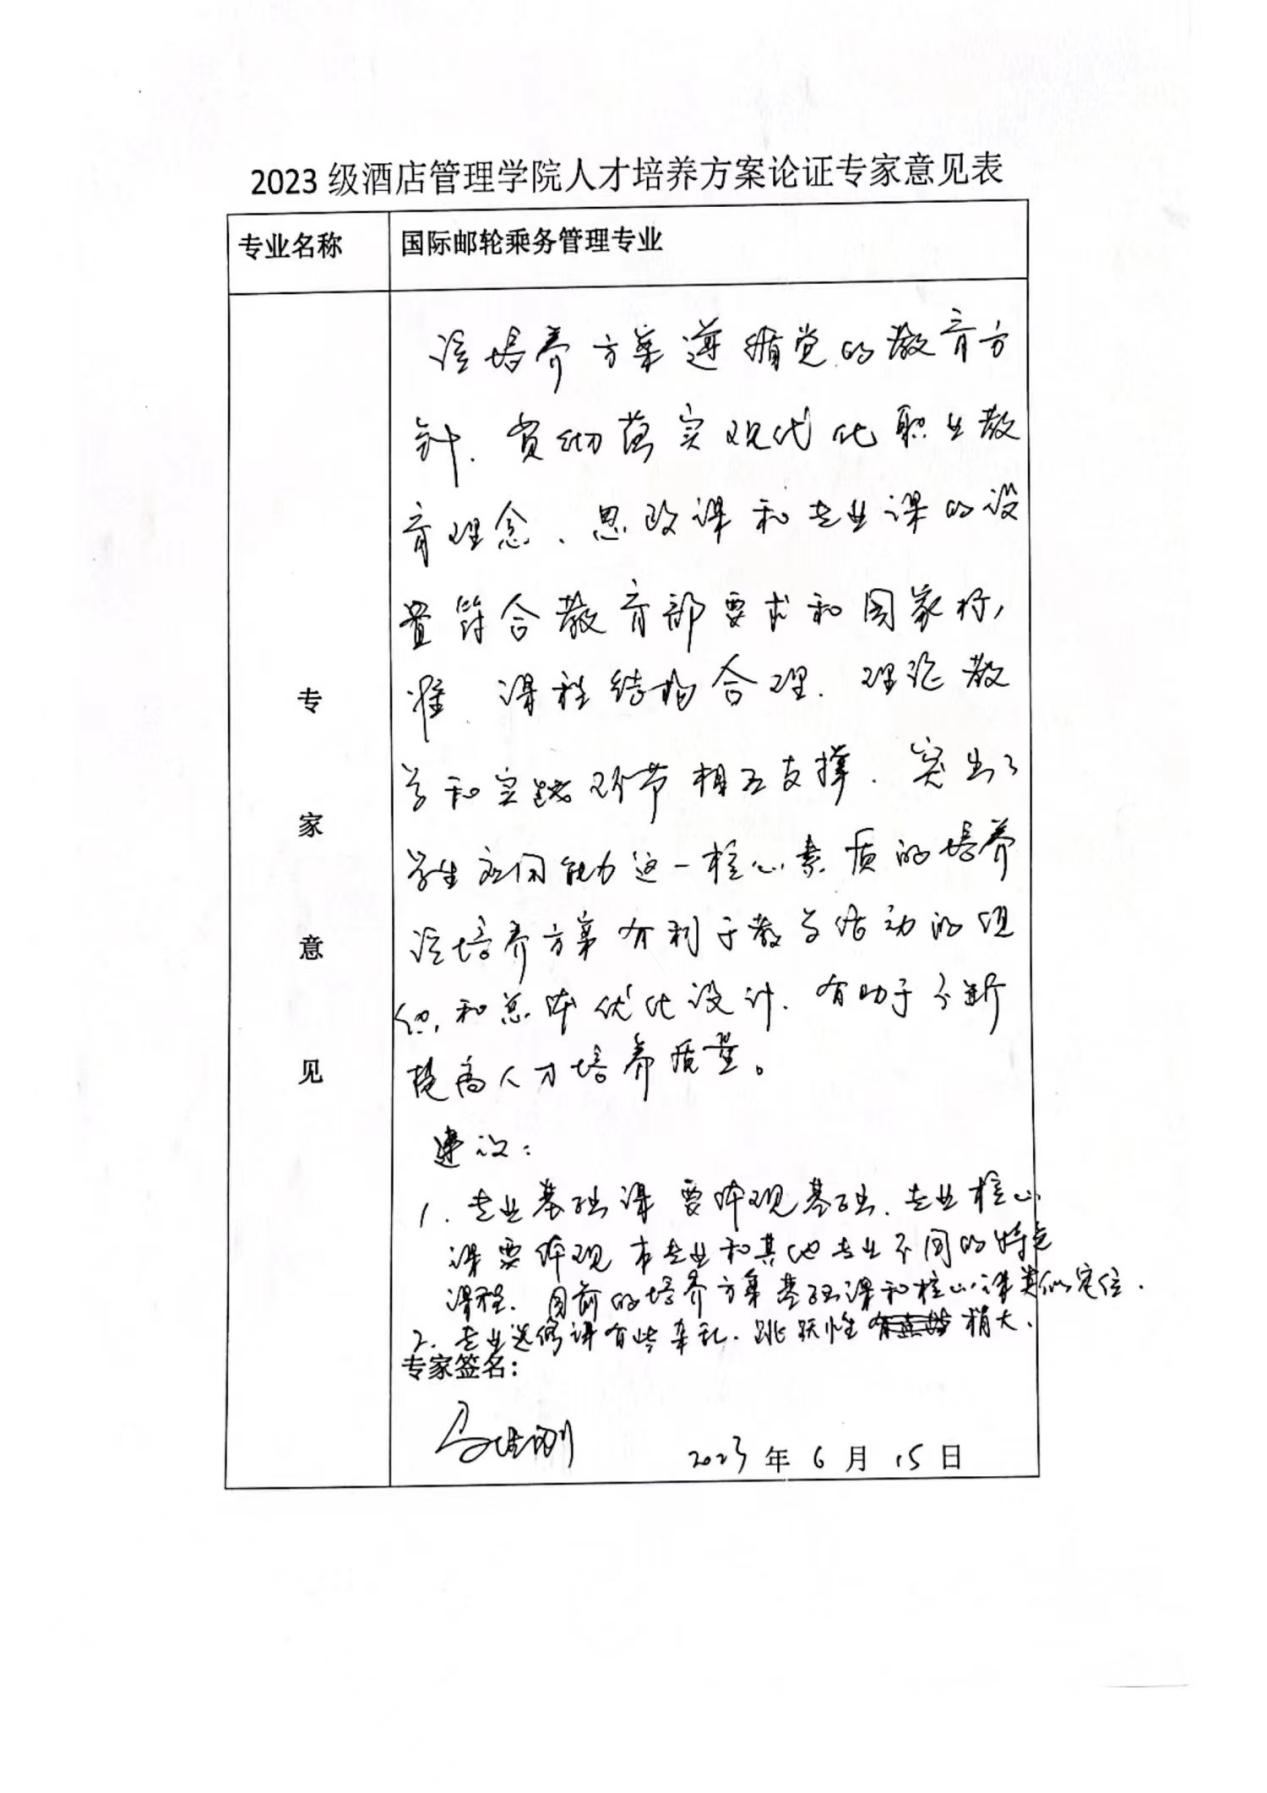 2023级酒店管理学院人才培养方案论证专家意见表
专业名称 国际邮轮乘务管理专业
专家意见
该培养方案遵循党的教育方
针、贯彻落实现代化职业教
育理念、思政课和专业课的设
置符合教育部要求和国家标
准、课程结构合理、理论教
学和实践环节相互支撑、突出了
学生应用能力这一核心素质的培养
该培养方案有利于教学活动的组
织和总体优化设计、有助于不断
提高人才培养质量。
建议:
1. 专业基础课要体现基础、专业核心
课要体现本专业和其他专业不同的特色
课程、目前的培养方案基础课和核心课类似定位.
2. 专业选修课有些杂乱、跳跃性稍大.
专家签名:
2023年6月15日